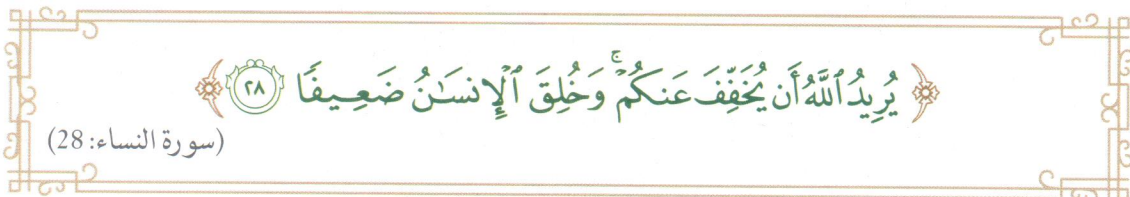 ﴿ يُرِيدُ ٱللَّهُ أَن يُخَفِّفَ عَنكُمْ ۚ وَخُلِقَ ٱلْإِنسَـٰنُ ضَعِيفًا ۝٢٨ ﴾
(سورة النساء: 28)